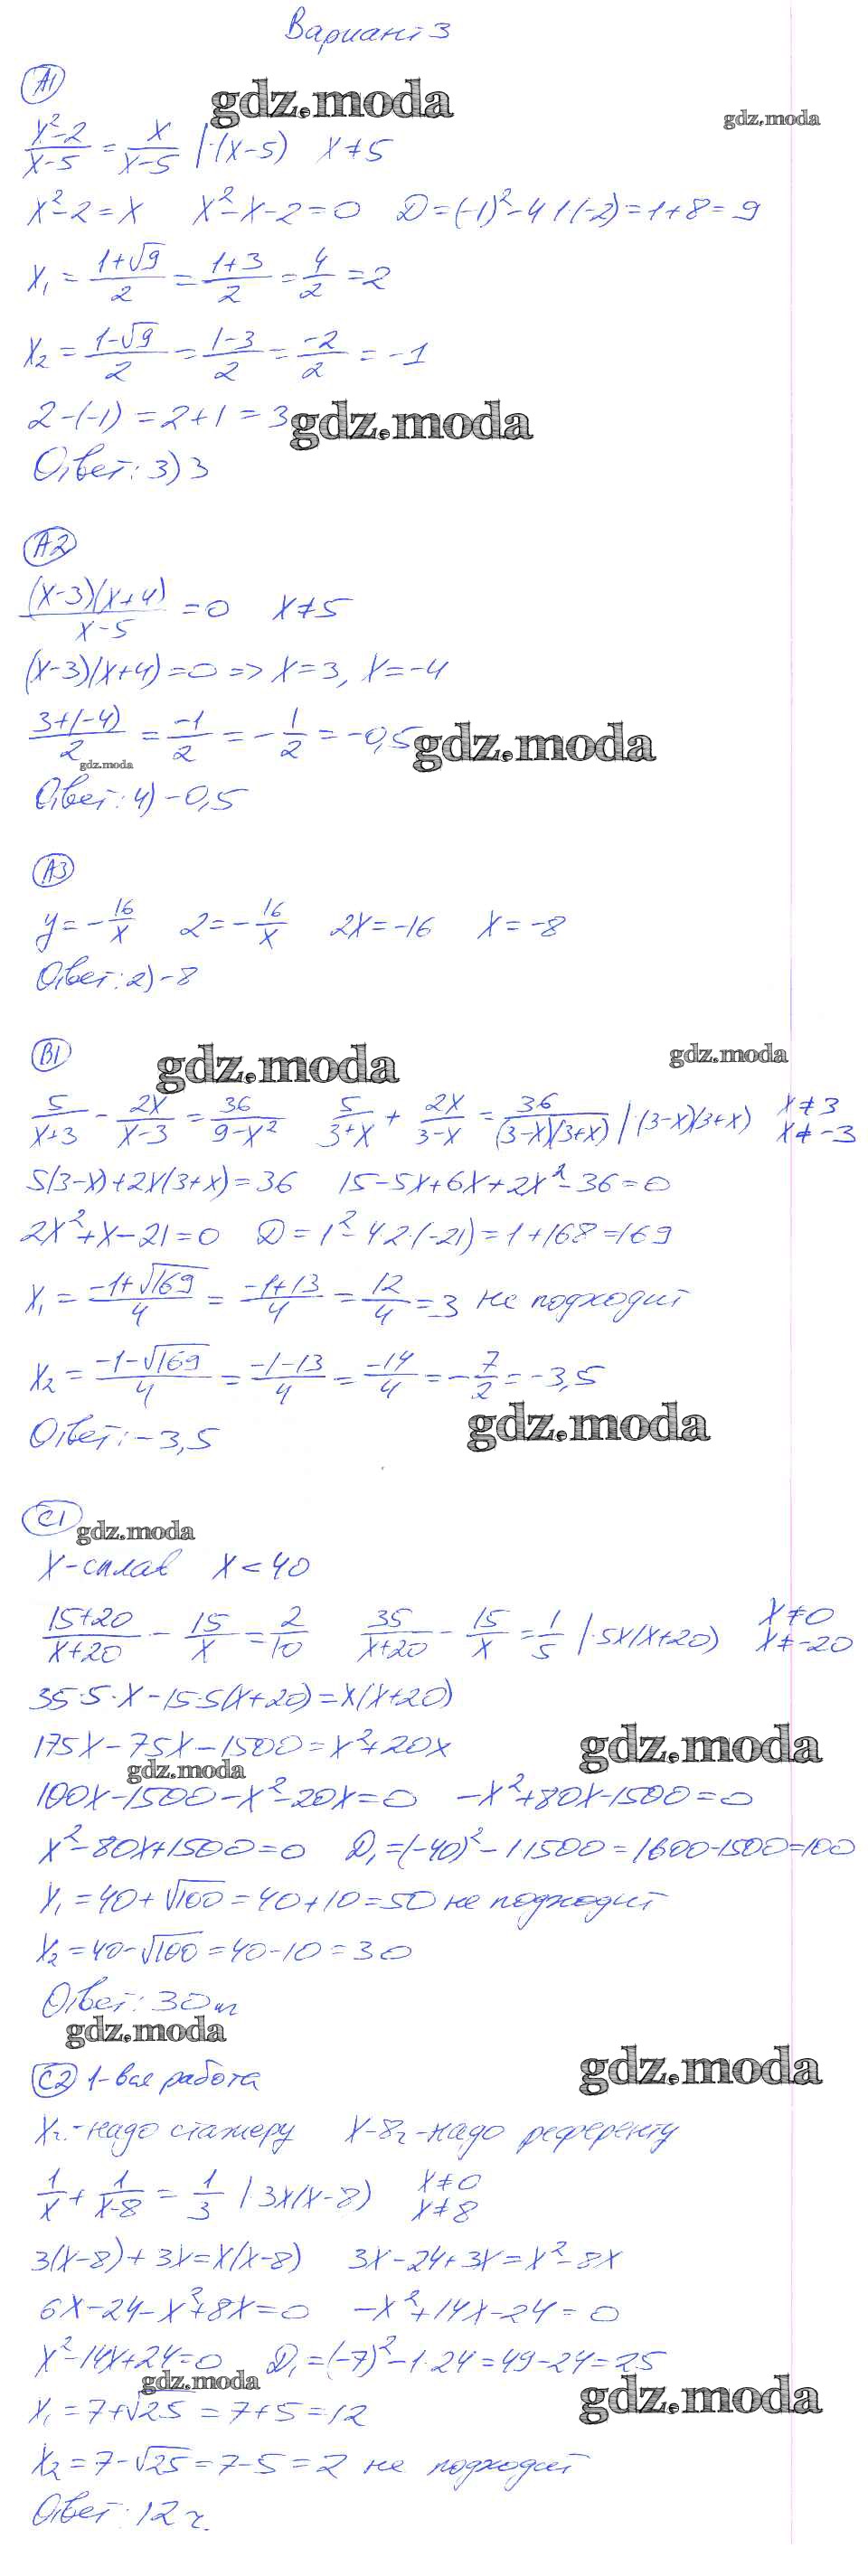 Вариант 3
А1
gdz.moda
gdz.moda
(x²-2)/(x-5) = x/(x-5) |·(x-5) x≠5
x²-2=x x²-x-2=0 D=(-1)²-4·1·(-2)=1+8=9
x₁ = (1+√9)/2 = (1+3)/2 = 4/2 = 2
x₂ = (1-√9)/2 = (1-3)/2 = -2/2 = -1
2-(-1) = 2+1 = 3
gdz.moda
Ответ: 3) 3
А2
((x-3)(x+4))/(x-5) = 0 x≠5
(x-3)(x+4)=0 => x=3, x=-4
(3+(-4))/2 = -1/2 = -1/2 = -0,5
gdz.moda
gdz.moda
Ответ: 4) -0,5
А3
y=-16/x 2=-16/x 2x=-16 x=-8
Ответ: 2) -8
В1
gdz.moda
gdz.moda
5/(x+3) - 2x/(x-3) = 36/(9-x²) 5/(3+x) + 2x/(3-x) = 36/((3-x)(3+x)) |·(3-x)(3+x) x≠3 x≠-3
5(3-x)+2x(3+x)=36 15-5x+6x+2x²-36=0
2x²+x-21=0 D=1²-4·2·(-21)=1+168=169
x₁ = (-1+√169)/4 = (-1+13)/4 = 12/4 = 3 не подходит
x₂ = (-1-√169)/4 = (-1-13)/4 = -14/4 = -7/2 = -3,5
gdz.moda
Ответ: -3,5
С1
gdz.moda
x-сплав x<40
(15+20)/(x+20) - 15/x = 2/10 35/(x+20) - 15/x = 1/5 |·5x(x+20) x≠0 x≠-20
35·5·x-15·5(x+20)=x(x+20)
175x-75x-1500=x²+20x
gdz.moda
gdz.moda
100x-1500-x²-20x=0 -x²+80x-1500=0
x²-80x+1500=0 D₁=(-40)²-1·1500=1600-1500=100
x₁=40+√100=40+10=50 не подходит
x₂=40-√100=40-10=30
Ответ: 30 т
gdz.moda
gdz.moda
С2 1-вся работа
x ч.-надо стажеру x-8 ч-надо референту
1/x + 1/(x-8) = 1/3 |·3x(x-8) x≠0 x≠8
3(x-8)+3x=x(x-8) 3x-24+3x=x²-8x
6x-24-x²+8x=0 -x²+14x-24=0
x²-14x+24=0 D₁=(-7)²-1·24=49-24=25
gdz.moda
gdz.moda
x₁=7+√25=7+5=12
x₂=7-√25=7-5=2 не подходит
Ответ: 12 ч.